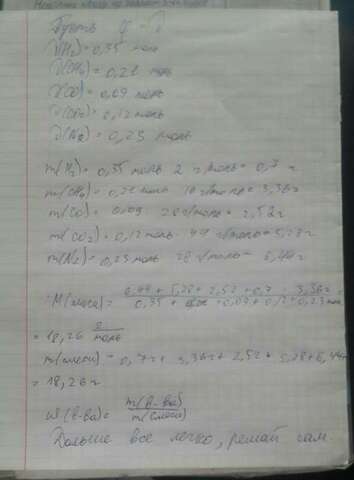 Пусть
ν(H₂) = 0,35 моль
ν(CH₄) = 0,21 моль
ν(CO) = 0,09 моль
ν(CO₂) = 0,12 моль
ν(N₂) = 0,23 моль
m(H₂) = 0,35 моль · 2 г/моль = 0,7 г
m(CH₄) = 0,21 моль · 16 г/моль = 3,36 г
m(CO) = 0,09 · 28 г/моль = 2,52 г
m(CO₂) = 0,12 моль · 44 г/моль = 5,28 г
m(N₂) = 0,23 моль · 28 г/моль = 6,44 г
M(смеси) = 6,44 + 5,28 + 2,52 + 0,7 + 3,36 г
0,35 + + 0,09 + 0,12 + 0,23 моль
= 18,26 г/моль
m(смеси) = 0,7 г + 3,36 г + 2,52 + 5,28 + 6,44 г
= 18,26 г
W(в-ва) = m(в-ва) / m(смеси)
Дальше все легко, решай сам.